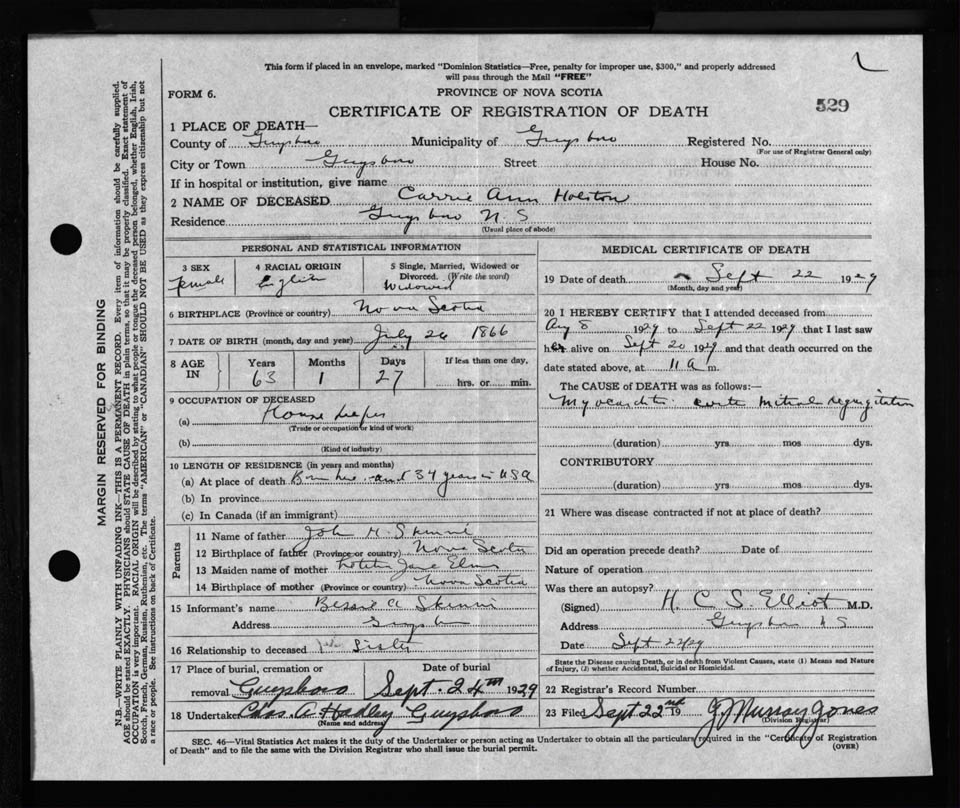 This form if placed in an envelope, marked "Dominion Statistics—Free, penalty for improper use, $300," and properly addressed
will pass through the Mail "FREE"
FORM 6. PROVINCE OF NOVA SCOTIA
529
CERTIFICATE OF REGISTRATION OF DEATH
1 PLACE OF DEATH—
County of Guysboro Municipality of Guysboro Registered No.
(For use of Registrar General only)
City or Town Guysboro Street House No.
If in hospital or institution, give name
2 NAME OF DECEASED Carrie Ann Holston
Residence Guysboro N. S
(Usual place of abode)
PERSONAL AND STATISTICAL INFORMATION
3 SEX 4 RACIAL ORIGIN 5 Single, Married, Widowed or
Divorced. (Write the word)
Female English Widowed
6 BIRTHPLACE (Province or country) Nova Scotia
7 DATE OF BIRTH (month, day and year) July 26 1866
8 AGE IN Years Months Days If less than one day,
63 1 27 hrs. or min.
9 OCCUPATION OF DECEASED
(a) House keeper
(Trade or occupation or kind of work)
(b)
(Kind of industry)
10 LENGTH OF RESIDENCE (in years and months)
(a) At place of death Born here and 34 years in USA
(b) In province
(c) In Canada (if an immigrant)
Parents
11 Name of father John H. Skinni
12 Birthplace of father (Province or country) Nova Scotia
13 Maiden name of mother Jane
14 Birthplace of mother (Province or country) Nova Scotia
15 Informant's name Bessie A Skinni
Address Guysboro
16 Relationship to deceased Sister
17 Place of burial, cremation or Date of burial
removal Guysboro Sept. 24th 1929
18 Undertaker Chas. A Hadley Guysboro
(Name and address)
MEDICAL CERTIFICATE OF DEATH
19 Date of death Sept 22 1929
(Month, day and year)
20 I HEREBY CERTIFY that I attended deceased from
Aug 8 1929 to Sept 22 1929 that I last saw
her alive on Sept 20 1929 and that death occurred on the
date stated above, at 11 a m.
The CAUSE of DEATH was as follows:—
Myocarditis acute mitral regurgitation
(duration) yrs mos dys.
CONTRIBUTORY
(duration) yrs. mos dys.
21 Where was disease contracted if not at place of death?
Did an operation precede death? Date of
Nature of operation
Was there an autopsy?
(Signed) H. C. S. Elliot M.D.
Address Guysboro N S
Date Sept 22/29
State the Disease causing Death, or in death from Violent Causes, state (1) Means and Nature
of Injury, (2) whether Accidental, Suicidal or Homicidal.
22 Registrar's Record Number
23 Filed Sept 22nd 19 J Murray Jones
(Division Registrar)
SEC. 46—Vital Statistics Act makes it the duty of the Undertaker or person acting as Undertaker to obtain all the particulars required in the "Certificate of Registration
of Death" and to file the same with the Division Registrar who shall issue the burial permit. (OVER)
MARGIN RESERVED FOR BINDING
N.B.—WRITE PLAINLY WITH UNFADING INK—THIS IS A PERMANENT RECORD. Every item of information should be carefully supplied.
AGE should be stated EXACTLY. PHYSICIANS should STATE CAUSE OF DEATH in plain terms, so that it may be properly classified. Exact statement of
OCCUPATION is very important. RACIAL ORIGIN will be described by stating to what people or tongue the deceased person belonged, whether English, Irish,
Scotch, French, German, Russian, Ruthenian, etc. The terms "AMERICAN" or "CANADIAN" SHOULD NOT BE USED as they express citizenship but not
a race or people. See instructions on back of Certificate.